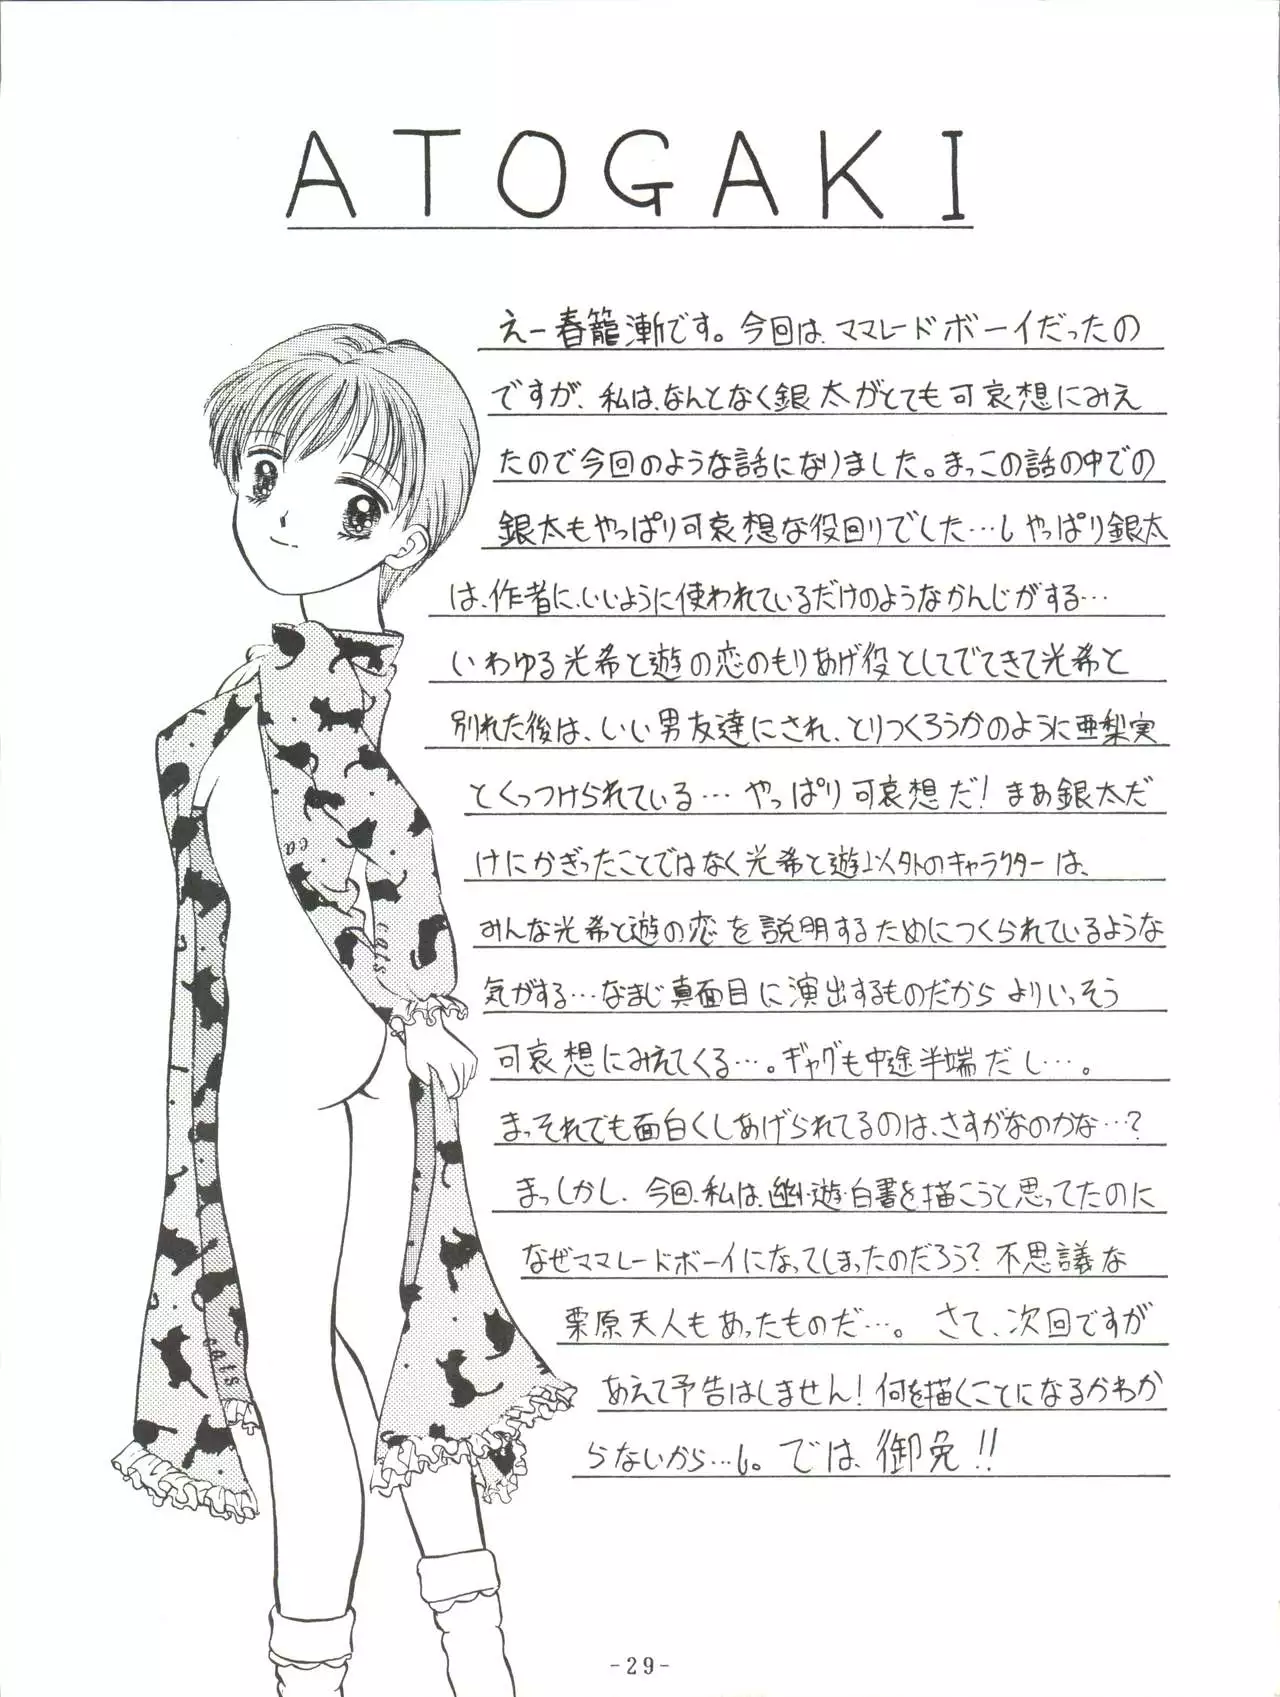 ATOGAKI
えー春籠漸です。今回は、ママレードボーイだったの
ですが、私は、なんとなく銀太がとても可哀想にみえ
たので今回のような話になりました。まっこの話の中での
銀太もやっぱり可哀想な役回りでした…し やっぱり銀太
は、作者に、いいように使われているだけのようなかんじがする…
いわゆる光希と遊の恋のもりあげ役としてでてきて光希と
別れた後は、いい男友達にされ、とりつくろうかのように亜梨実
とくっつけられている… やっぱり可哀想だ！まあ銀太だ
けにかぎったことではなく光希と遊以外のキャラクターは、
みんな光希と遊の恋を説明するためにつくられているような
気がする…なまじ真面目に演出するものだから よりいっそう
可哀想にみえてくる…。ギャグも中途半端だし…。
まっそれでも面白くしあげられてるのは、さすがなのかな…？
まっしかし、今回、私は、幽・遊・白書を描こうと思ってたのに
なぜママレードボーイになってしまったのだろう？不思議な
栗原天人もあったものだ…。 さて、次回ですが
あえて予告はしません！何を描くことになるかわか
らないから…し。では、御免!!
ca
cats
cats
-29-